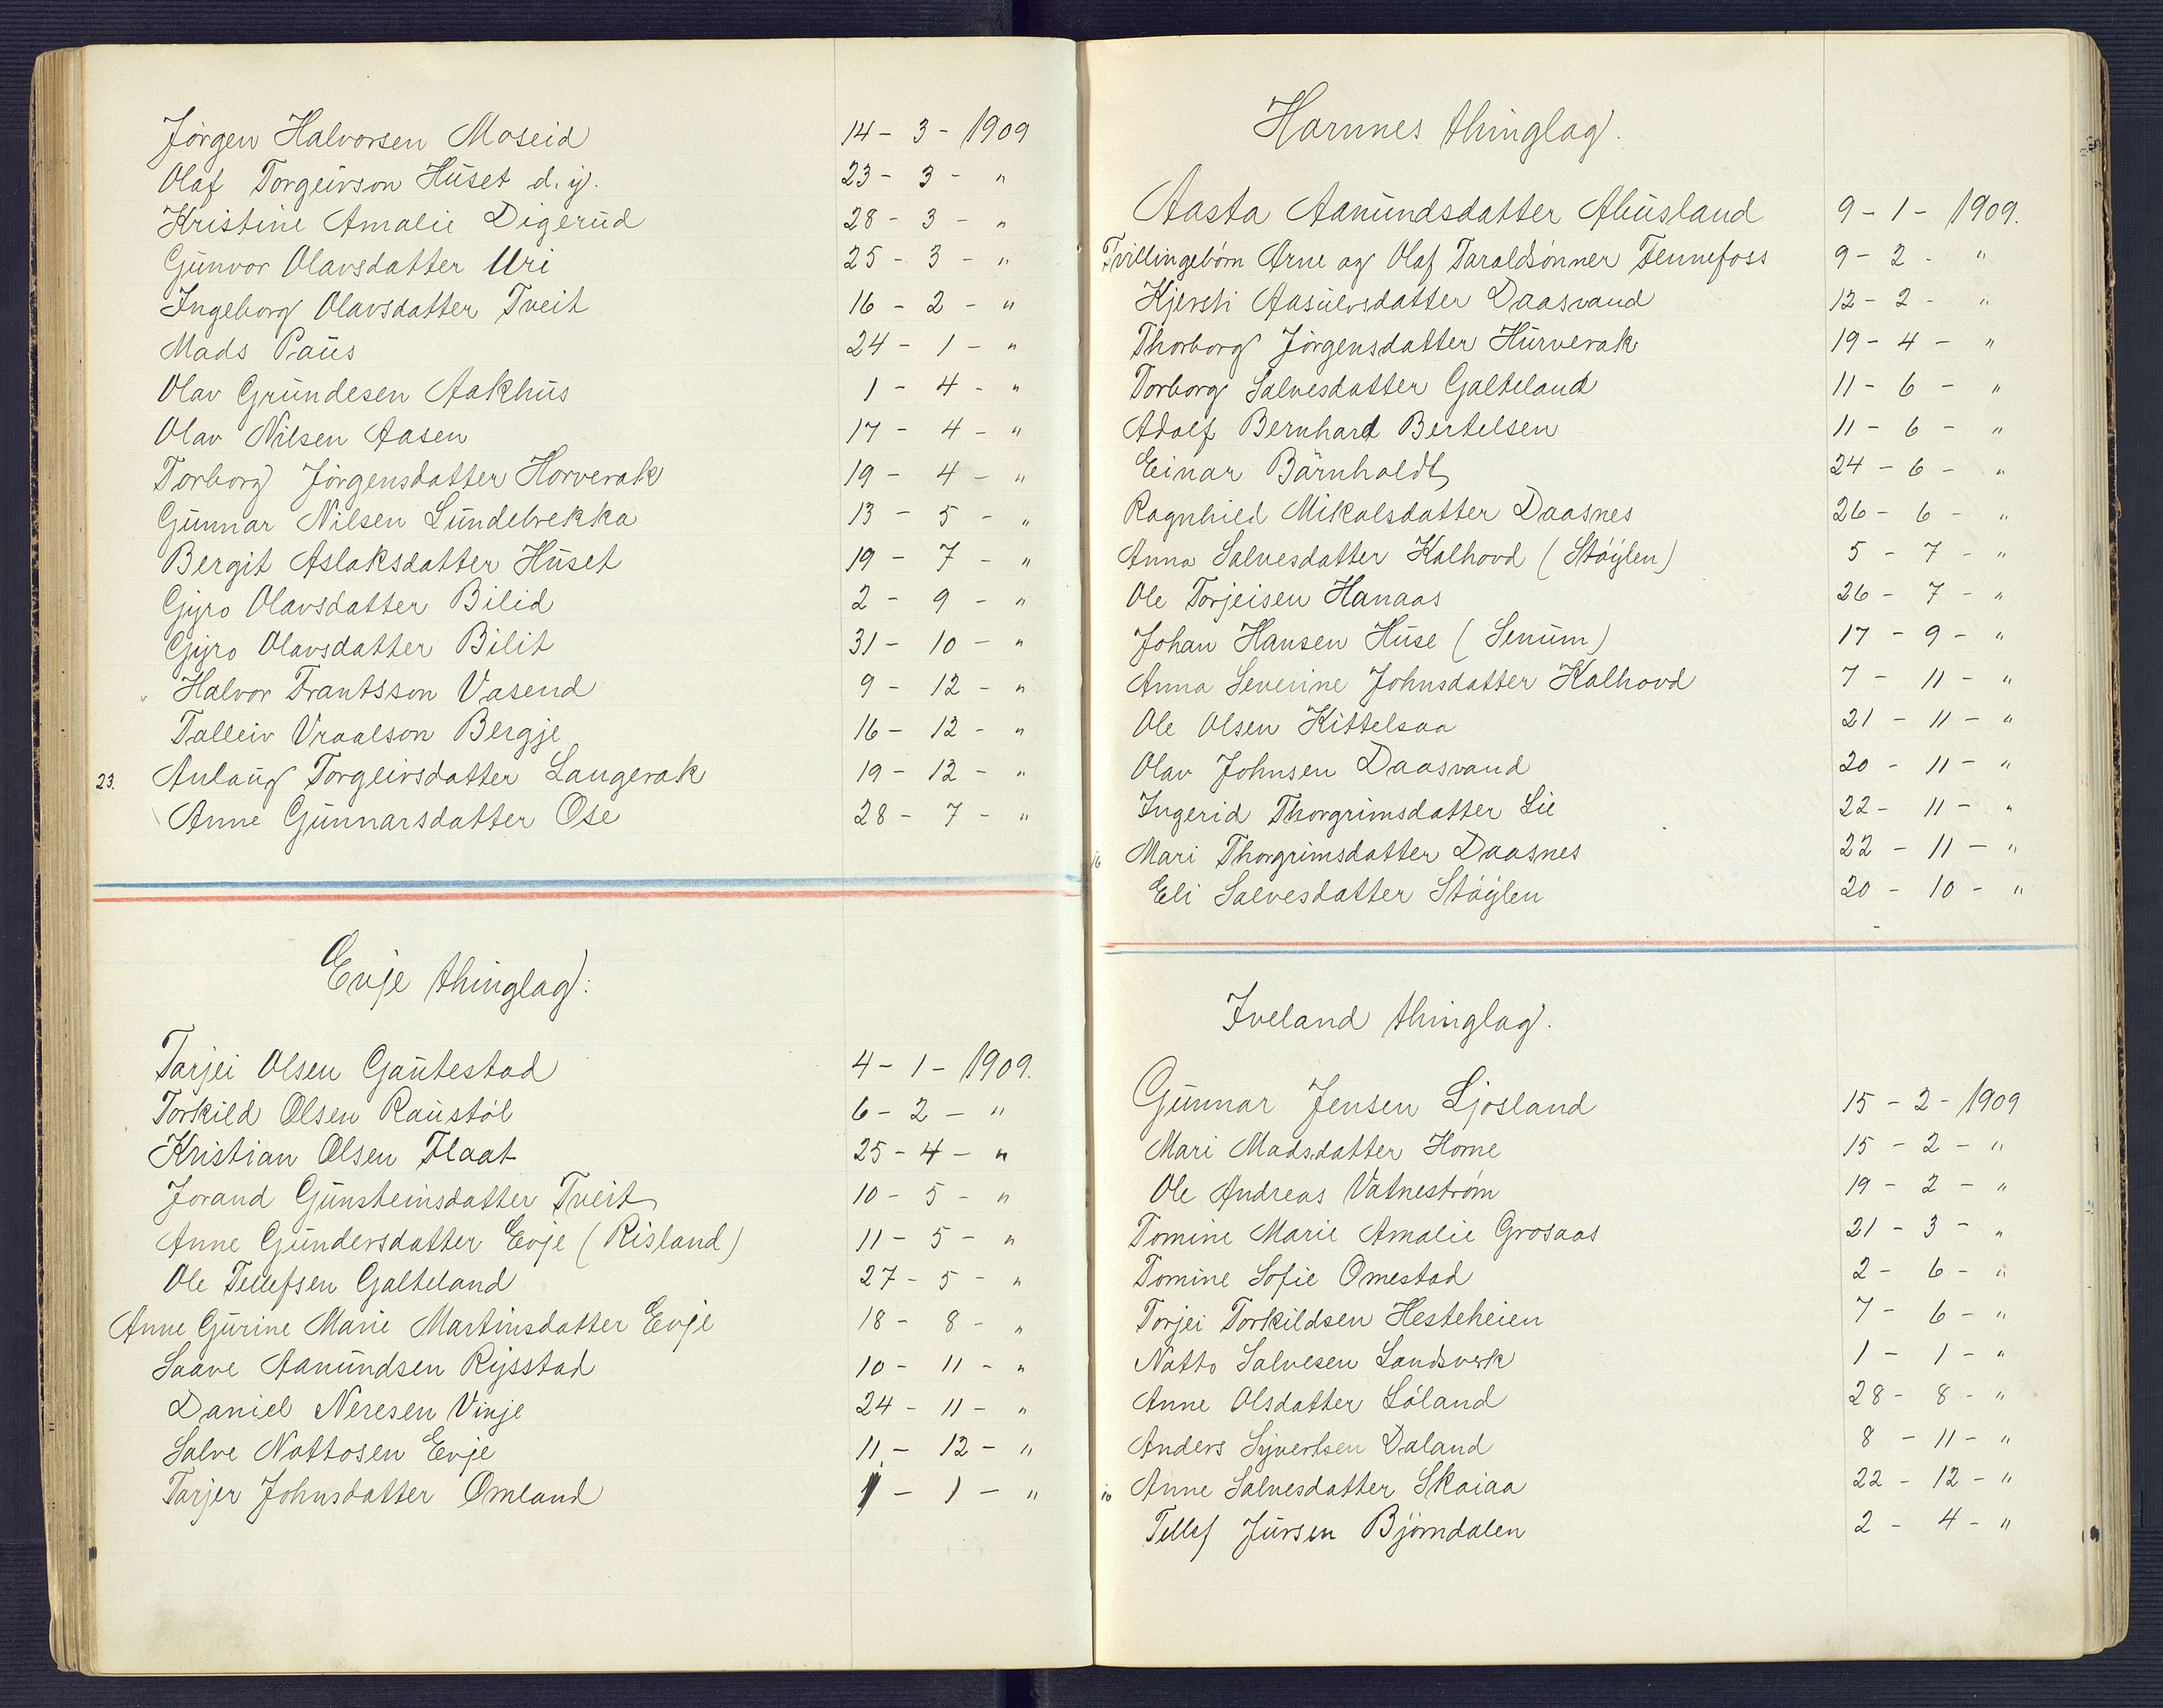 Jörgen Halvorsen Moseid 14 - 3 - 1909
Olaf Torgeirson Huset d. y. 23 - 3 - "
Kristine Amalie Digerud 28 - 3 - "
Gunvor Olavsdatter Uri 25 - 3 - "
Ingeborg Olavsdatter Tveit 16 - 2 - "
Mads Paus 24 - 1 - "
Olav Grundesen Aakhus 1 - 4 - "
Olav Nilsen Aasen 17 - 4 - "
Torborg Jörgensdatter Horverak 19 - 4 - "
Gunnar Nilsen Lundebrekka 13 - 5 - "
Bergit Aslaksdatter Huset 19 - 7 - "
Gyro Olavsdatter Bilid 2 - 9 - "
Gyro Olavsdatter Bilit 31 - 10 - "
Halvor Frantsson Vasend 9 - 12 - "
Talleiv Vraalson Bergje 16 - 12 - "
23. Anlaug Torgeirsdatter Langerak 19 - 12 - "
Anne Gunnarsdatter Ose 28 - 7 - "
Evje thinglag:
Tarjei Olsen Gautestad 4 - 1 - 1909.
Torkild Olsen Raustöl 6 - 2 - "
Kristian Olsen Flaat 25 - 4 - "
Jorand Gunsteinsdatter Tveit 10 - 5 - "
Anne Gundersdatter Evje (Risland) 11 - 5 - "
Ole Tellefsen Galteland 27 - 5 - "
Anne Gurine Marie Martinsdatter Evje 18 - 8 - "
Saave Aanundsen Rysstad 10 - 11 - "
Daniel Neresen Vinje 24 - 11 - "
Salve Nottosen Evje 11 - 12 - "
Tarjer Johnsdatter Omland 1 - 1 - "
Hornnes thinglag.
Aasta Aanundsdatter Abusland 9 - 1 - 1909.
Tvillingebörn Arne og Olaf Taraldsönner Fennefoss 9 - 2 - "
Kjersti Aasulvsdatter Daasvand 12 - 2 - "
Thorborg Jörgensdatter Hurverak 19 - 4 - "
Torborg Salvesdatter Galteland 11 - 6 - "
Adolf Bernhard Bertelsen 11 - 6 - "
Einar Bärnholdt 24 - 6 - "
Ragnhild Mikalsdatter Daasnes 26 - 6 - "
Anna Salvesdatter Kalhovd (Stöylen) 5 - 7 - "
Ole Torjeisen Hanaas 26 - 7 - "
Johan Hansen Huse (Senum) 17 - 9 - "
Anna Severine Johnsdatter Kalhovd 7 - 11 - "
Ole Olsen Kittelsaa 21 - 11 - "
Olav Johnsen Daasvand 20 - 11 - "
Ingerid Thorgrimsdatter Lie 22 - 11 - "
16 Mari Thorgrimsdatter Daasnes 22 - 11 - "
Eli Salvesdatter Stöylen 20 - 10 - "
Iveland thinglag.
Gunnar Jensen Ljosland 15 - 2 - 1909
Mari Madsdatter Horne 15 - 2 - "
Ole Andreas Vatneström 19 - 2 - "
Tomine Marie Amalie Grosaas 21 - 3 - "
Tomine Sofie Omestad 2 - 6 - "
Torjei Torkildsen Hesteheien 7 - 6 - "
Notto Salvesen Landsverk 1 - 1 - "
Anne Olsdatter Löland 28 - 8 - "
Anders Syvertsen Daland 8 - 11 - "
10 Anne Salvesdatter Skaiaa 22 - 12 - "
Tellef Jursen Björndalen 2 - 4 - "